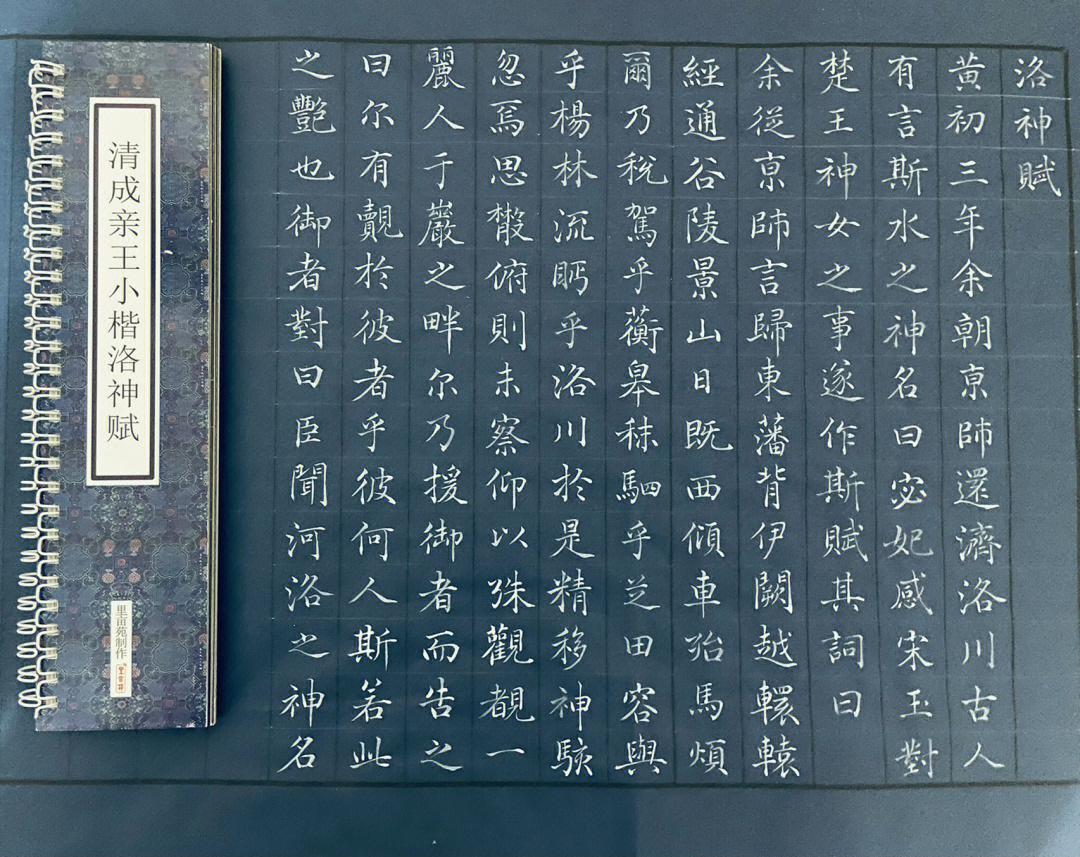 洛神賦
黄初三年余朝京師還濟洛川古人
有言斯水之神名曰宓妃感宋玉對
楚王神女之事遂作斯賦其詞曰
余從京師言歸東藩背伊闕越轘轅
經通谷陵景山日既西傾車殆馬煩
爾乃稅駕乎蘅皋秣駟乎芝田容與
乎楊林流眄乎洛川於是精移神駭
忽焉思散俯則未察仰以殊觀覩一
麗人于巖之畔尔乃援御者而告之
曰尔有覿於彼者乎彼何人斯若此
之艷也御者對曰臣聞河洛之神名
清成亲王小楷洛神赋
里亩苑制作